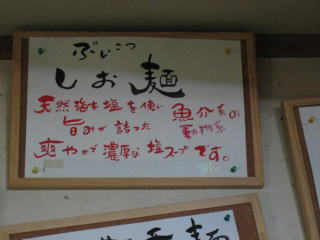 ぶしこつ
しお麺
天然海水塩を使い 魚介系の
動物系
旨みが詰った
爽やかで濃厚な塩スープです。
麺